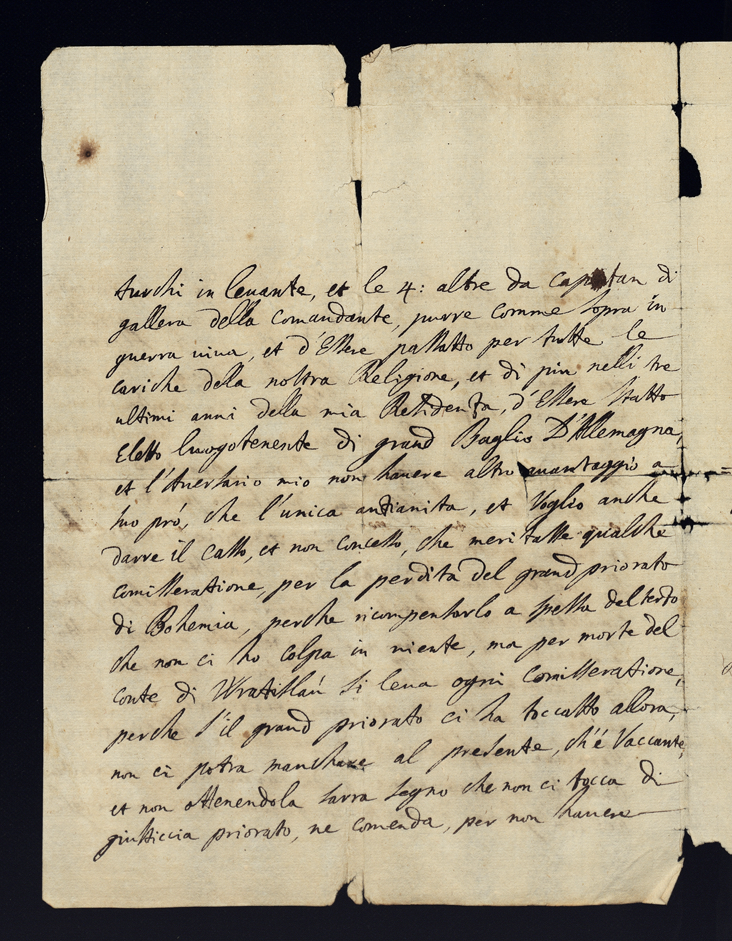 turchi in levante, et le 4: altre da capitan di
gallera della Comandante, purre comme sopra in
guerra viva, et d'Essere passatto per tutte le
cariche della nostra Religione, et di piu nelli tre
ultimi anni della mia Residenza, d'Essere statto
Eletto luogotenente di grand Baglio D'Allemagna,
et l'Aversario mio non havere altro avantaggio a
suo pró, che l'unica antianita, et Voglio anche
darre il casso, et non concesso, che meritasse qualche
comisseratione, per la perdita del grand priorato
di Bohemia, perche ricompensarlo a spessa del terzo
che non ci ho colpa in niente, ma per morte del
conte di Wratislaú si leva ogni Comisseratione,
perche s'il grand priorato ci ha toccatto allora,
non ci potra manchare al presente, ch'é Vaccante,
et non ottenendola sarra segno che non ci tocca di
giusticcia priorato, ne comenda, per non havere